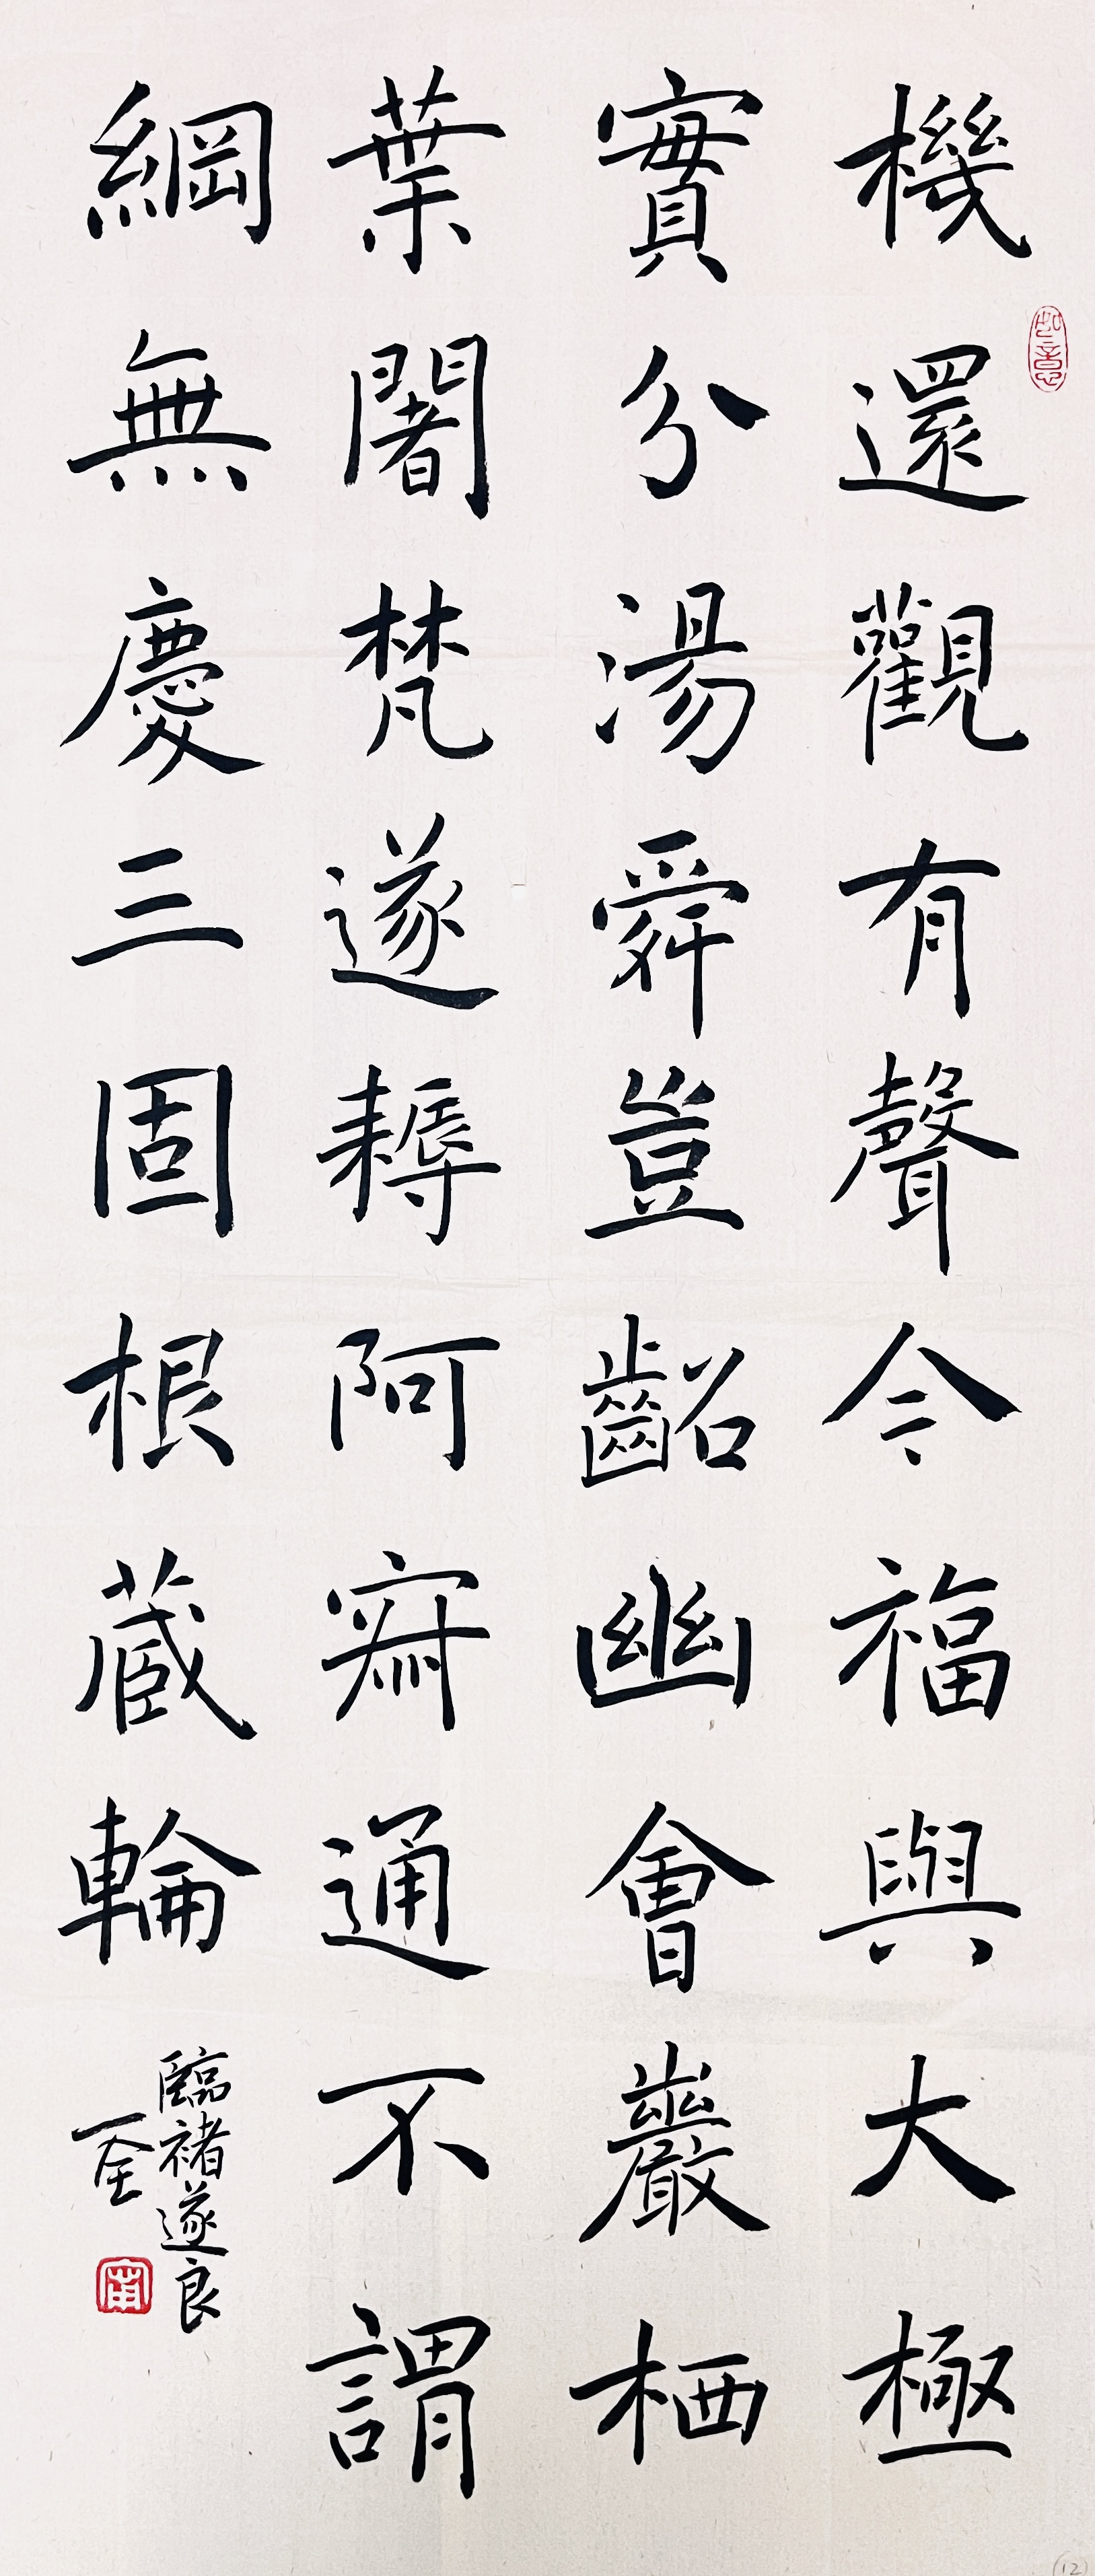 機還觀有聲令福與大極
實分湯舜豈齠幽會巖栖
葉闍梵遂耨阿寂通不謂
綱無慶三固根蔵輪
臨褚遂良
一全
如意
12